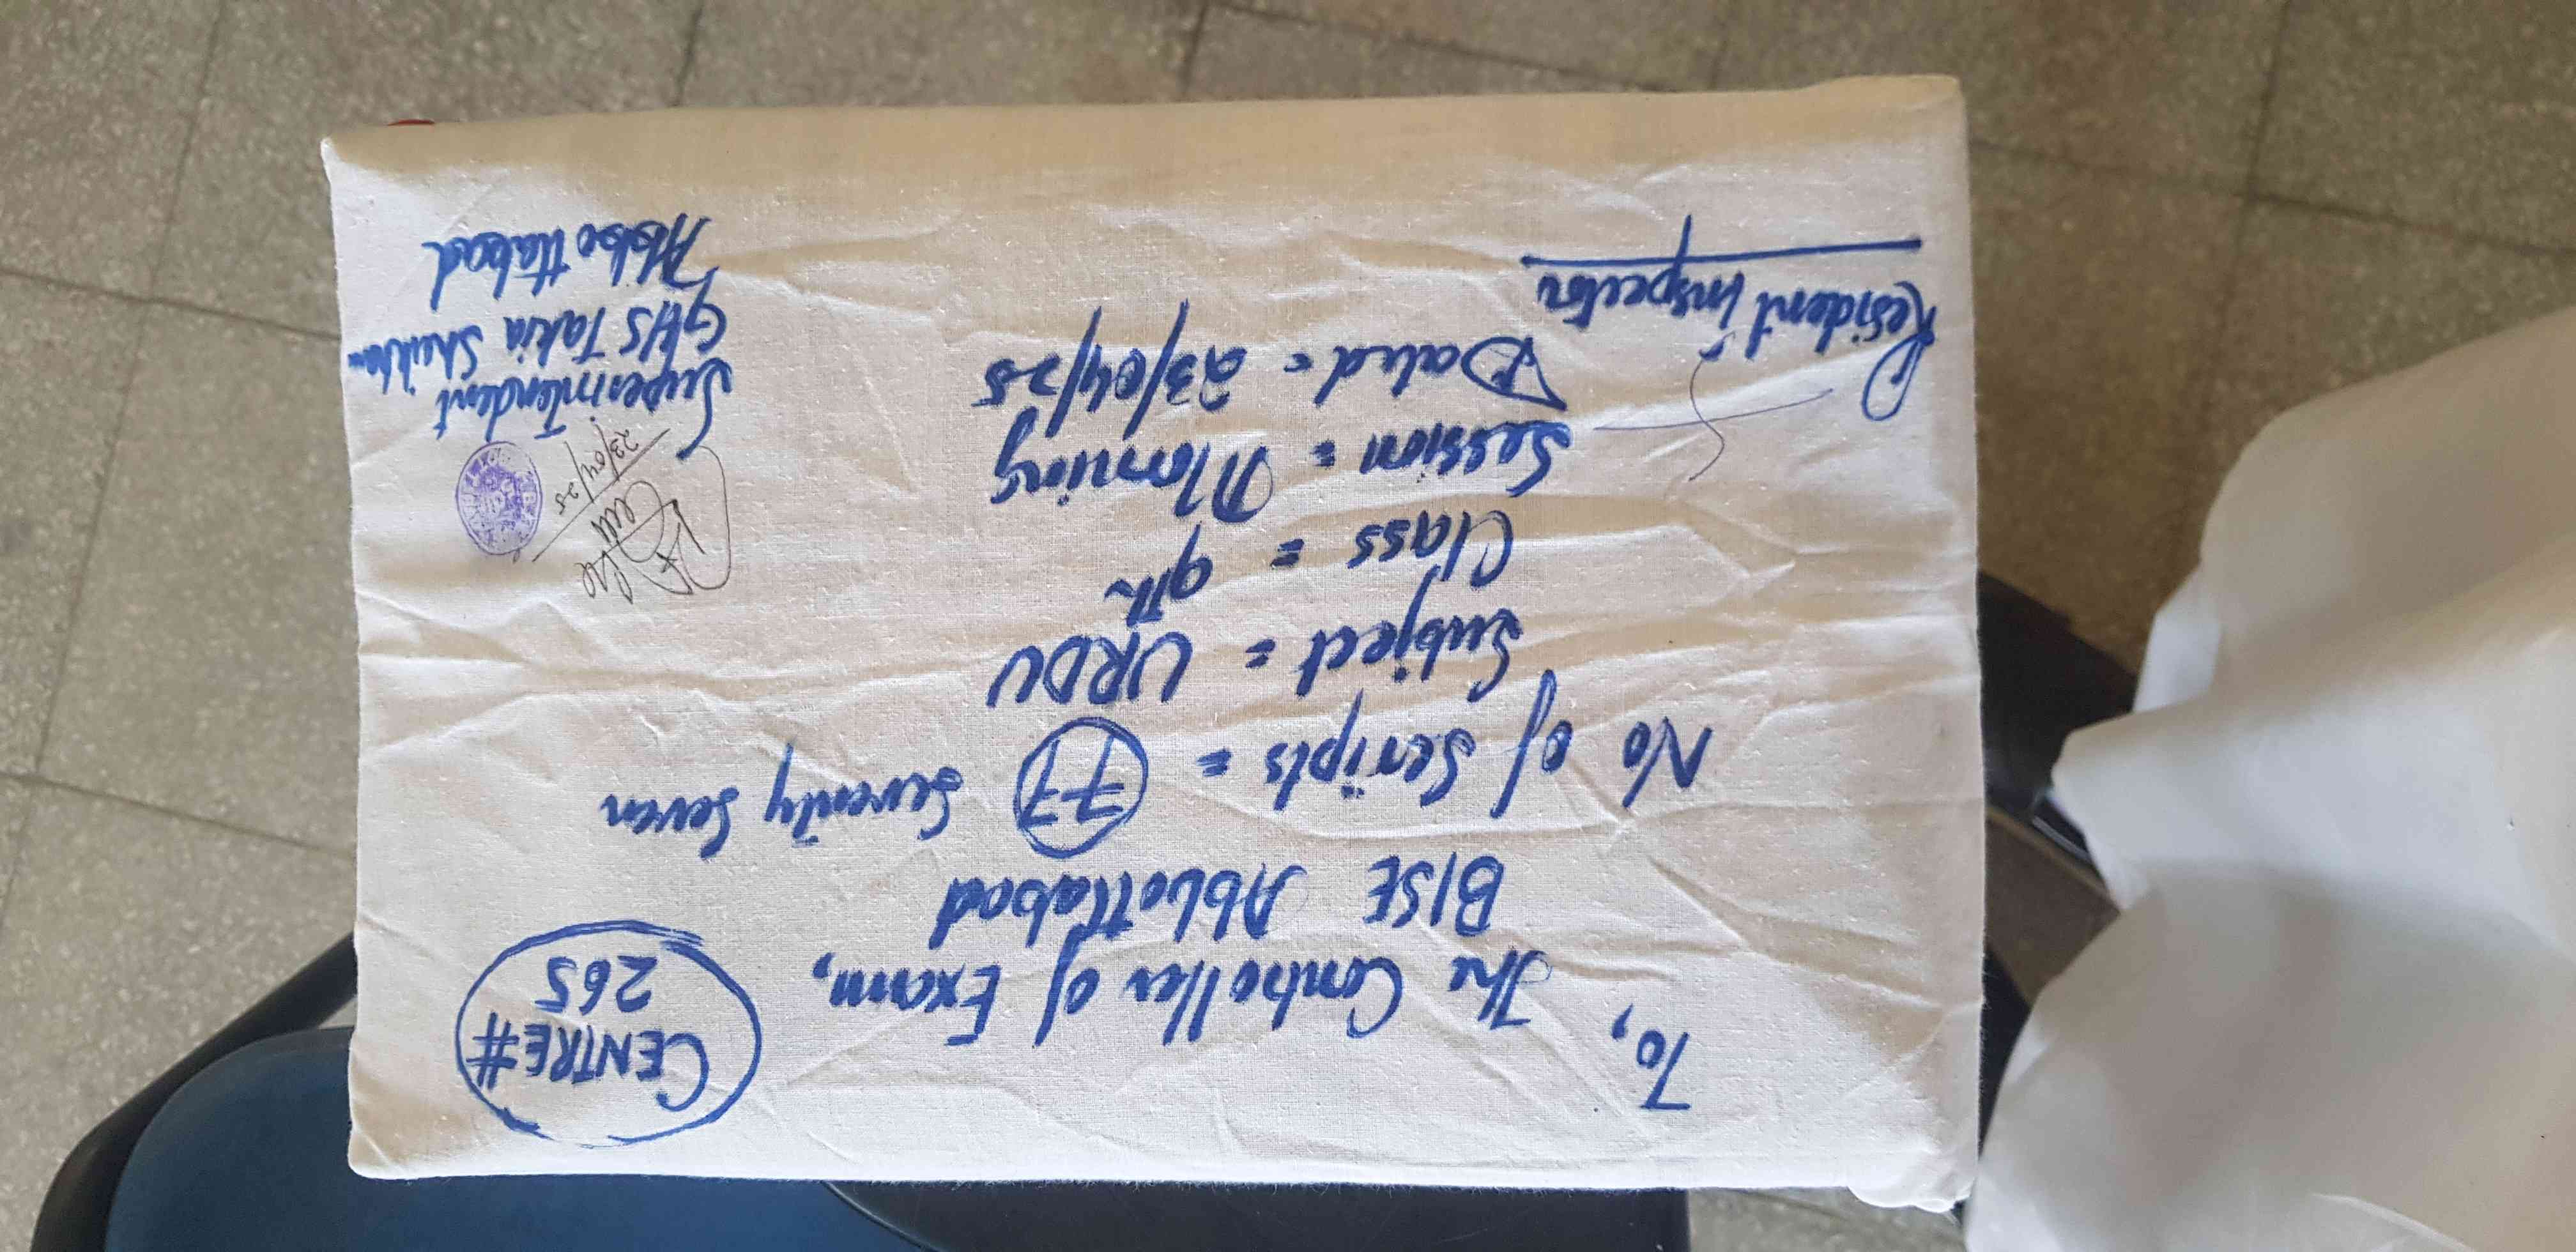 CENTRE #
265
To,
The Controller of Exam,
BISE Abbottabad
No of Scripts = 77 Seventy Seven
Subject = URDU
Class = 9th
Session = Morning
Dated = 23/04/25
Resident Inspector
23/04/25
Superintendent
GHS Takia Sheikhan
Abbottabad